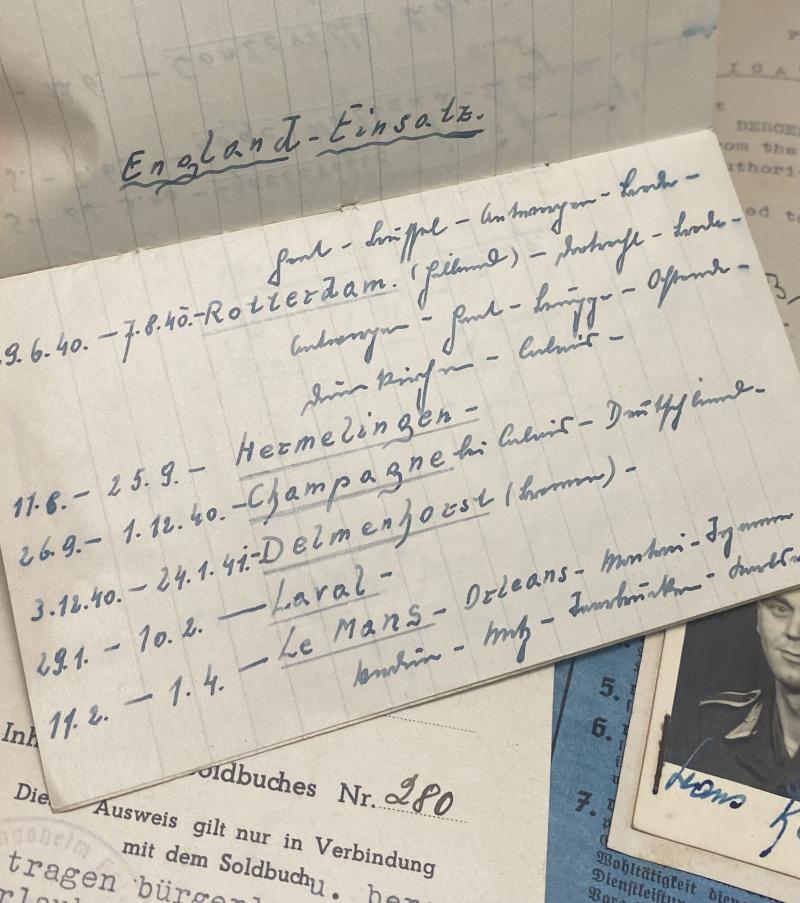 England-Einsatz.
Gent - Brüssel - Antwerpen - Breda -
9.6.40. - 7.8.40. - Rotterdam. (Holland) - Dortrecht - Breda -
Antwerpen - Gent - Brügge - Ostende -
Dünkirchen - Calais -
11.8. - 25.9. - Hermelingen -
26.9. - 1.12.40. - Champagne bei Calais - Deutschland -
3.12.40. - 24.1.41. - Delmenhorst (Bremen) -
29.1. - 10.2. - Laval -
11.2. - 1.4. - Le Mans - Orleans -
Verdun - Metz - Saarbrücken -
BERGE
om the
uthori
ed to
Inh
oldbuches Nr. 280
Die
Ausweis gilt nur in Verbindung
mit dem Soldbuch u.
tragen bürger
5.
6.
7.
Hans
Wohltätigkeit
Dienstleistu